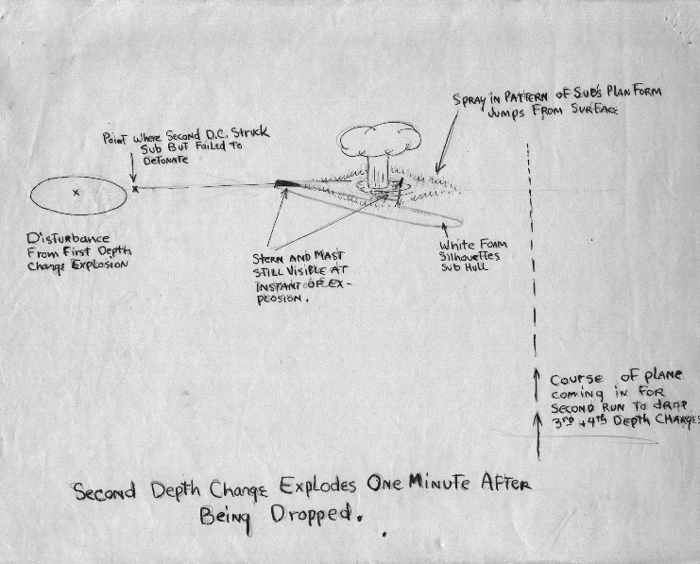 Spray in Pattern of Sub's Plan Form
Jumps From Surface
Point Where Second D.C. Struck
Sub But Failed to
Detonate
x
x
Disturbance
From First Depth
Charge Explosion
Stern and Mast
Still Visible at
Instant of Ex-
plosion.
White Foam
Silhouettes
Sub Hull
Course of plane
coming in for
second run to drop
3rd + 4th Depth Charges
Second Depth Charge Explodes One Minute After
Being Dropped.